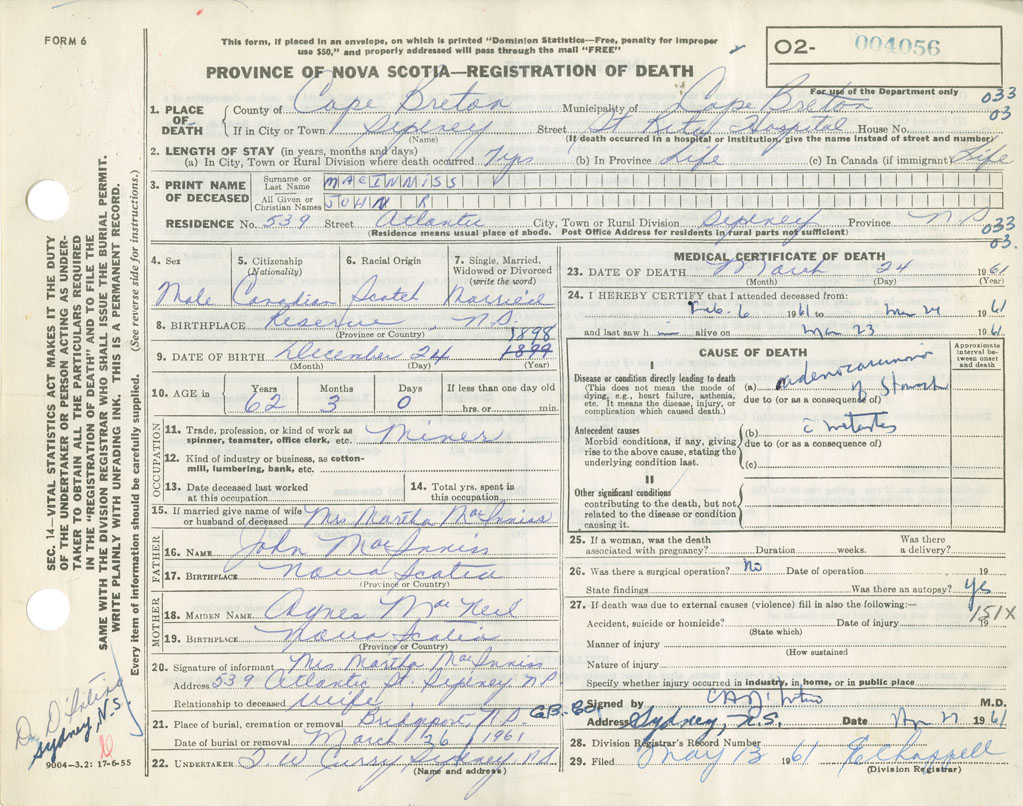 FORM 6
This form, if placed in an envelope, on which is printed "Dominion Statistics—Free, penalty for improper
use $50," and properly addressed will pass through the mail "FREE"
O2- 004056
For use of the Department only
PROVINCE OF NOVA SCOTIA—REGISTRATION OF DEATH
033
03
1. PLACE OF DEATH
County of Cape Breton Municipality of Cape Breton
If in City or Town Sydney Street St Rita Hospital House No.
(Name) (If death occurred in a hospital or institution, give the name instead of street and number)
2. LENGTH OF STAY (in years, months and days)
(a) In City, Town or Rural Division where death occurred (b) In Province Life (c) In Canada (if immigrant) Life
3. PRINT NAME OF DECEASED
Surname or Last Name MACINNISS
All Given or Christian Names JOHN R
RESIDENCE No. 539 Street Atlantic City, Town or Rural Division Sydney Province N S
(Residence means usual place of abode. Post Office Address for residents in rural parts not sufficient)
033
03.
4. Sex Male
5. Citizenship (Nationality) Canadian
6. Racial Origin Scotch
7. Single, Married, Widowed or Divorced (write the word) Married
8. BIRTHPLACE Reserve, N.S.
(Province or Country)
1898
9. DATE OF BIRTH December 24 1899
(Month) (Day) (Year)
10. AGE in Years 62 Months 3 Days 0 If less than one day old hrs. or min.
OCCUPATION
11. Trade, profession, or kind of work as spinner, teamster, office clerk, etc. Miner
12. Kind of industry or business, as cotton-mill, lumbering, bank, etc.
13. Date deceased last worked at this occupation
14. Total yrs. spent in this occupation
15. If married give name of wife or husband of deceased Mrs Martha MacInniss
FATHER
16. NAME John MacInniss
17. BIRTHPLACE Nova Scotia
(Province or Country)
MOTHER
18. MAIDEN NAME Agnes MacNeil
19. BIRTHPLACE Nova Scotia
(Province or Country)
20. Signature of informant Mrs Martha MacInniss
Address 539 Atlantic St. Sydney N.S.
Relationship to deceased Wife
21. Place of burial, cremation or removal Bridgeport N.S.
Date of burial or removal March 26 1961
22. UNDERTAKER Curry Sydney N.S.
(Name and address)
MEDICAL CERTIFICATE OF DEATH
23. DATE OF DEATH March 24 1961
(Month) (Day) (Year)
24. I HEREBY CERTIFY that I attended deceased from:
Feb. 6 1961 to Mar 24 1961
and last saw him alive on Mar 23 1961
CAUSE OF DEATH
Approximate interval between onset and death
I
Disease or condition directly leading to death
(This does not mean the mode of dying, e.g., heart failure, asthenia, etc. It means the disease, injury, or complication which caused death.)
(a) adenocarcinoma of Stomach
due to (or as a consequence of)
Antecedent causes
Morbid conditions, if any, giving rise to the above cause, stating the underlying condition last.
(b) c metastases
due to (or as a consequence of)
(c)
II
Other significant conditions
contributing to the death, but not related to the disease or condition causing it.
25. If a woman, was the death associated with pregnancy? Duration weeks. Was there a delivery?
26. Was there a surgical operation? No Date of operation 19
State findings Was there an autopsy? yes
27. If death was due to external causes (violence) fill in also the following:—
151X
Accident, suicide or homicide? Date of injury 19
(State which)
Manner of injury
(How sustained
Nature of injury
Specify whether injury occurred in industry, in home, or in public place
Signed by M.D.
Address Sydney, N.S. Date 1961
28. Division Registrar's Record Number
29. Filed May 13 1961 Chappell
(Division Registrar)
SEC. 14—VITAL STATISTICS ACT MAKES IT THE DUTY
OF THE UNDERTAKER OR PERSON ACTING AS UNDER-
TAKER TO OBTAIN ALL THE PARTICULARS REQUIRED
IN THE "REGISTRATION OF DEATH" AND TO FILE THE
SAME WITH THE DIVISION REGISTRAR WHO SHALL ISSUE THE BURIAL PERMIT.
WRITE PLAINLY WITH UNFADING INK. THIS IS A PERMANENT RECORD.
Every item of information should be carefully supplied. (See reverse side for instructions.)
Sydney, N.S.
9004-3.2: 17-6-55